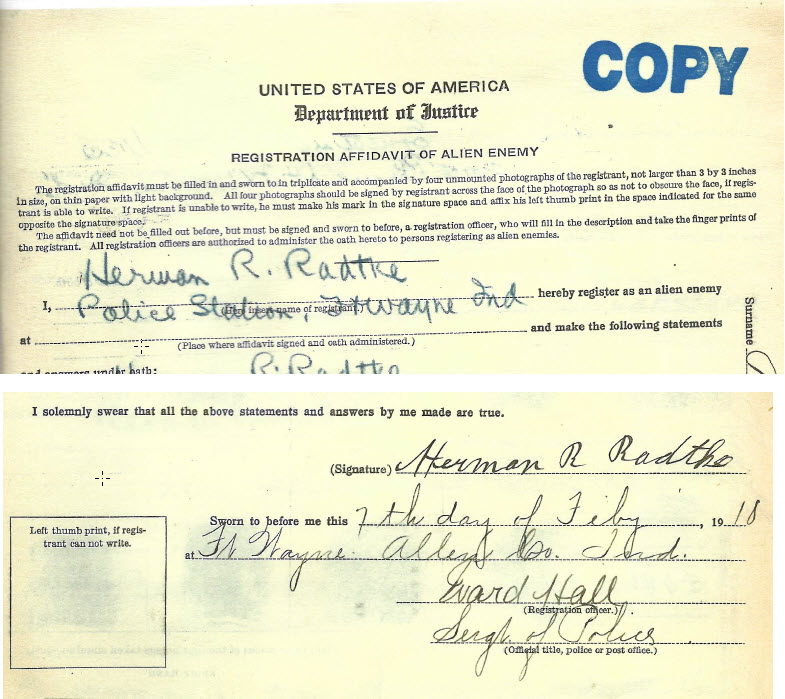 COPY
UNITED STATES OF AMERICA
Department of Justice
REGISTRATION AFFIDAVIT OF ALIEN ENEMY
The registration affidavit must be filled in and sworn to in triplicate and accompanied by four unmounted photographs of the registrant, not larger than 3 by 3 inches
in size, on thin paper with light background. All four photographs should be signed by registrant across the face of the photograph so as not to obscure the face, if regis-
trant is able to write. If registrant is unable to write, he must make his mark in the signature space and affix his left thumb print in the space indicated for the same
opposite the signature space.
The affidavit need not be filled out before, but must be signed and sworn to before, a registration officer, who will fill in the description and take the finger prints of
the registrant. All registration officers are authorized to administer the oath hereto to persons registering as alien enemies.
Herman R. Radtke
I, hereby register as an alien enemy
(Here insert name of registrant.)
Police Station, Ft Wayne Ind
at and make the following statements
(Place where affidavit signed and oath administered.)
Surname
and answers under oath:
R. Radtke
I solemnly swear that all the above statements and answers by me made are true.
(Signature) Herman R Radtke
Left thumb print, if regis-
trant can not write.
Sworn to before me this 7th day of Feby, 1918
at Ft Wayne Allen Co. Ind.
Ward Hall
(Registration officer.)
Sergt. of Police
(Official title, police or post office.)